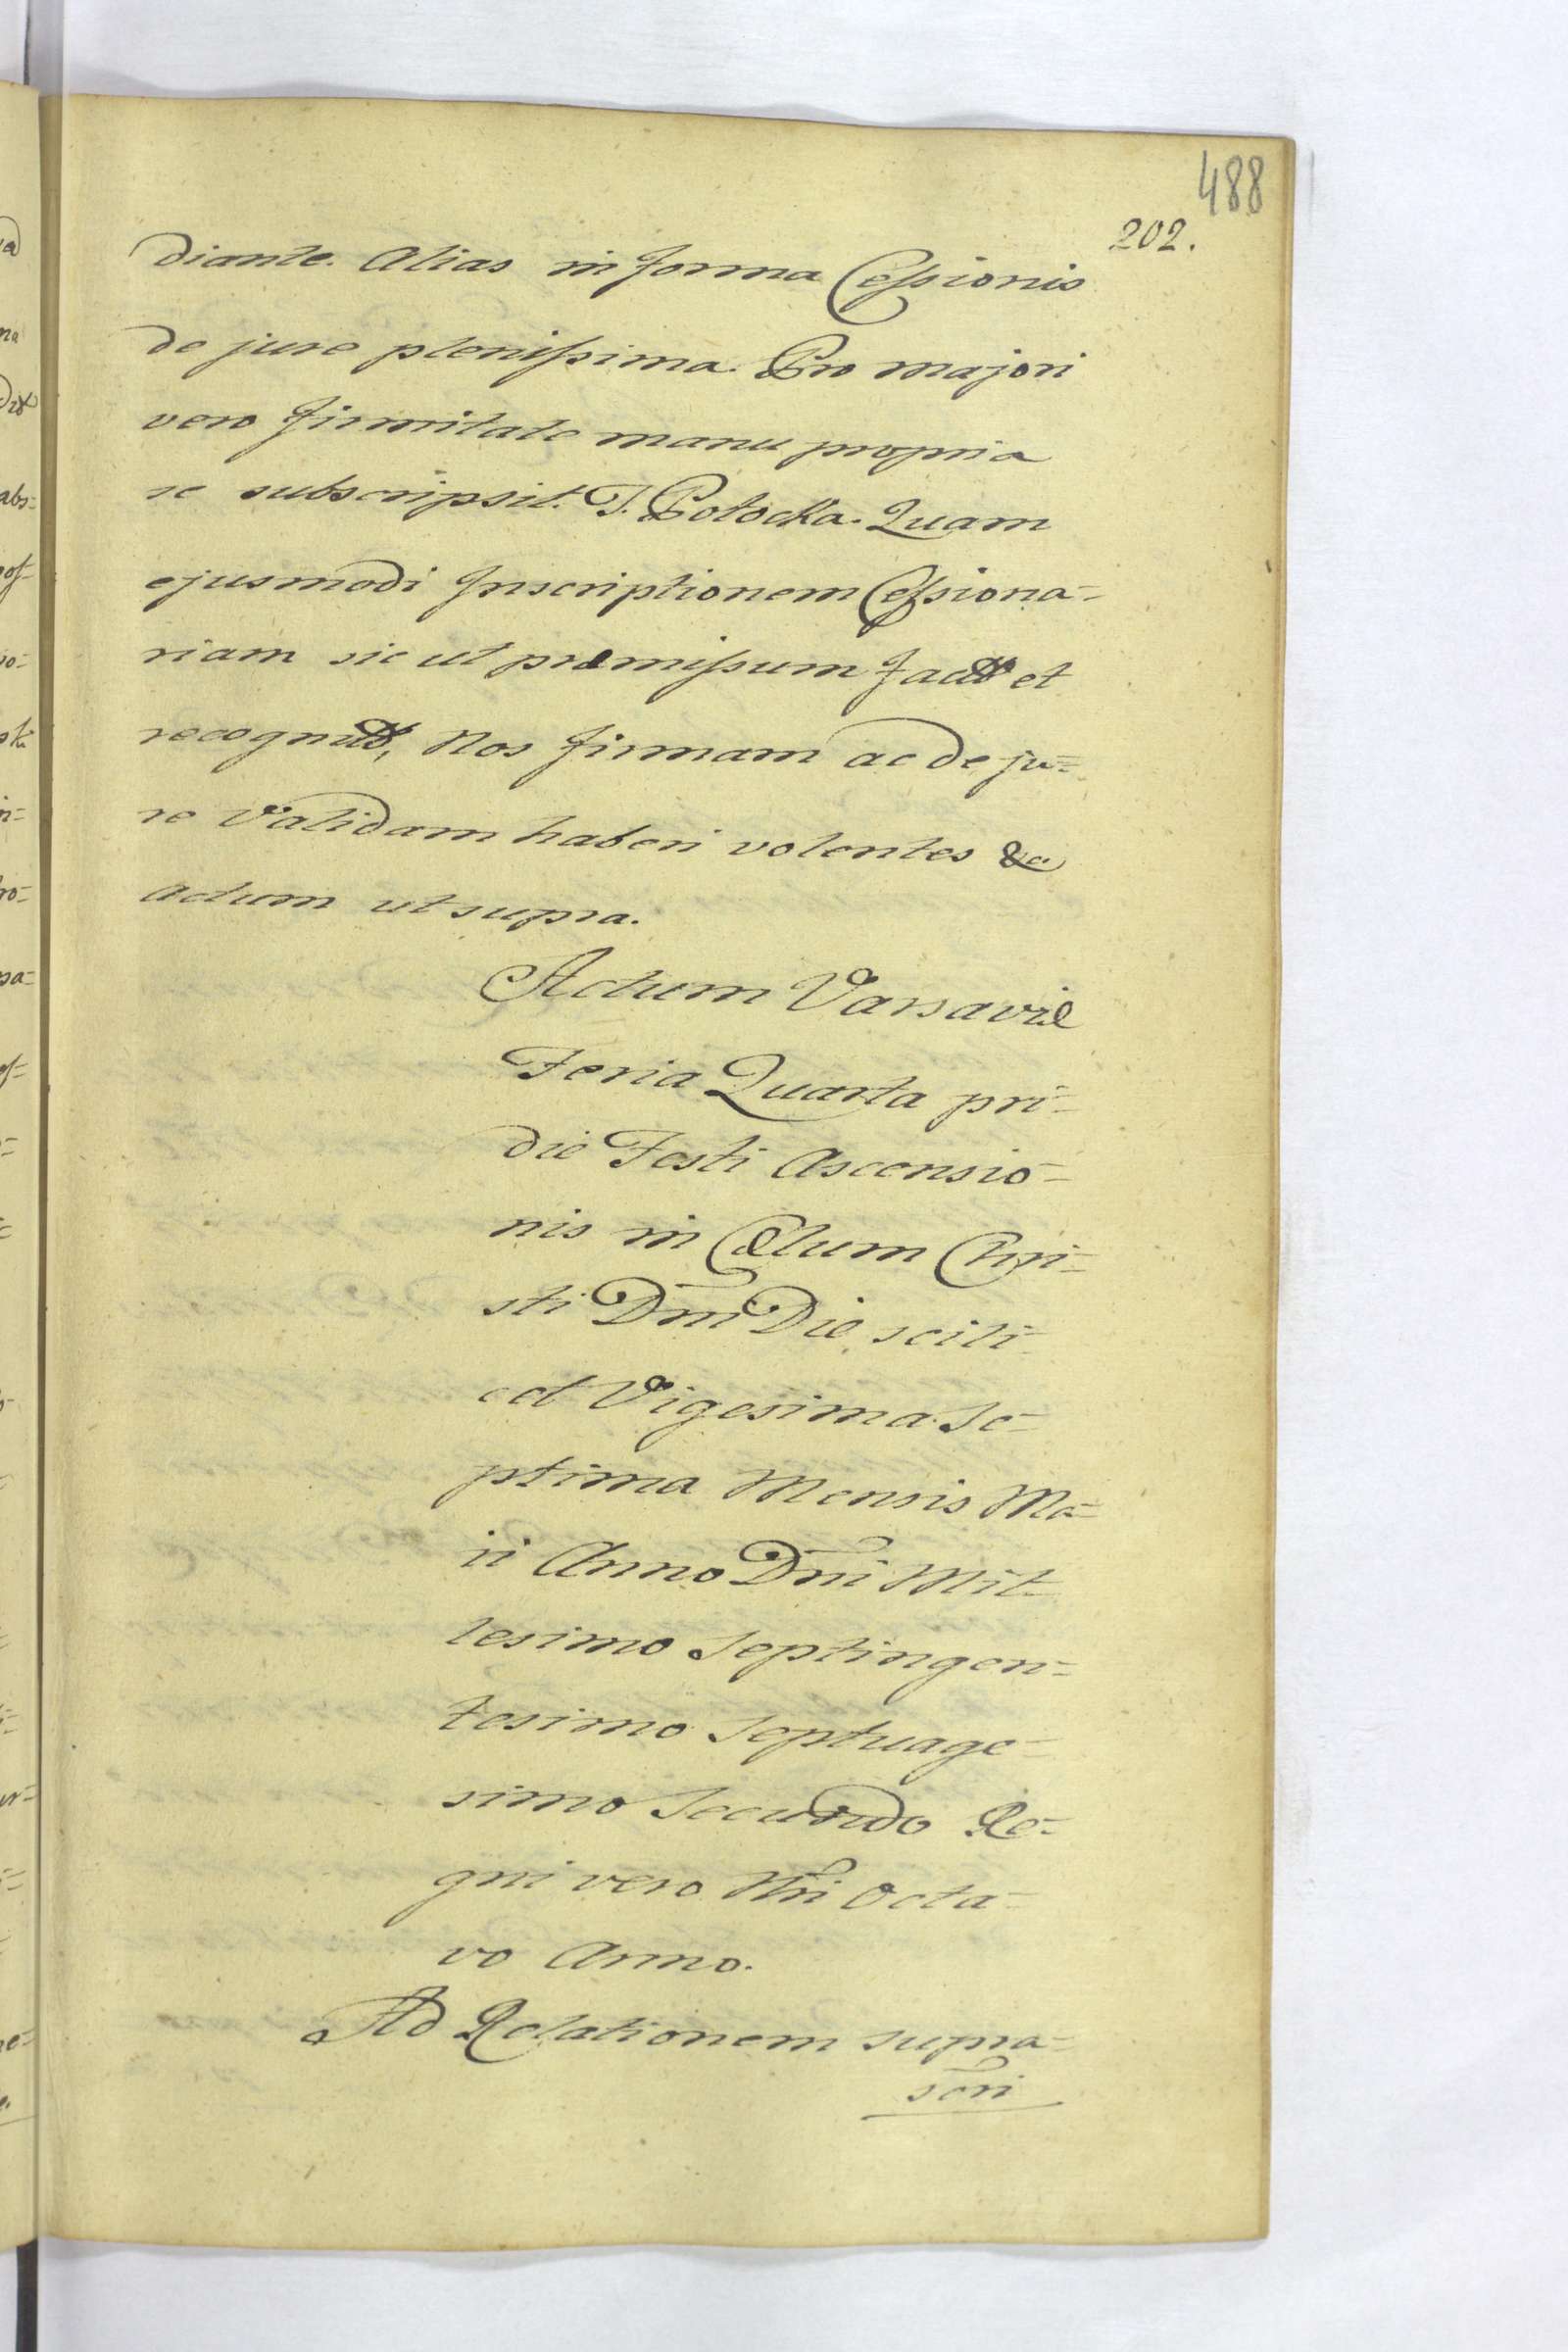 488
202.
diante. Alias in forma Cessionis
de jure plenissima. Pro majori
vero firmitate manu propria
se subscripsit. T. Potocka. Quam
ejusmodi Inscriptionem Cessiona=
riam sic ut præmissum
et
recognit, Nos firmam ac de ju=
re Validam haberi volentes &c
actum ut supra.
Actum Varsaviæ
Feria Quarta pri=
die Festi Ascensio=
nis in Cælum Chri=
sti Dni Die scili=
cet Vigesima Se=
ptima Mensis Ma=
ii Anno Dni Mil=
lesimo Septingen=
tesimo Septuage=
simo Secundo Re=
gni vero Nri Octa=
vo Anno.
Ad Relationem supra=
scri